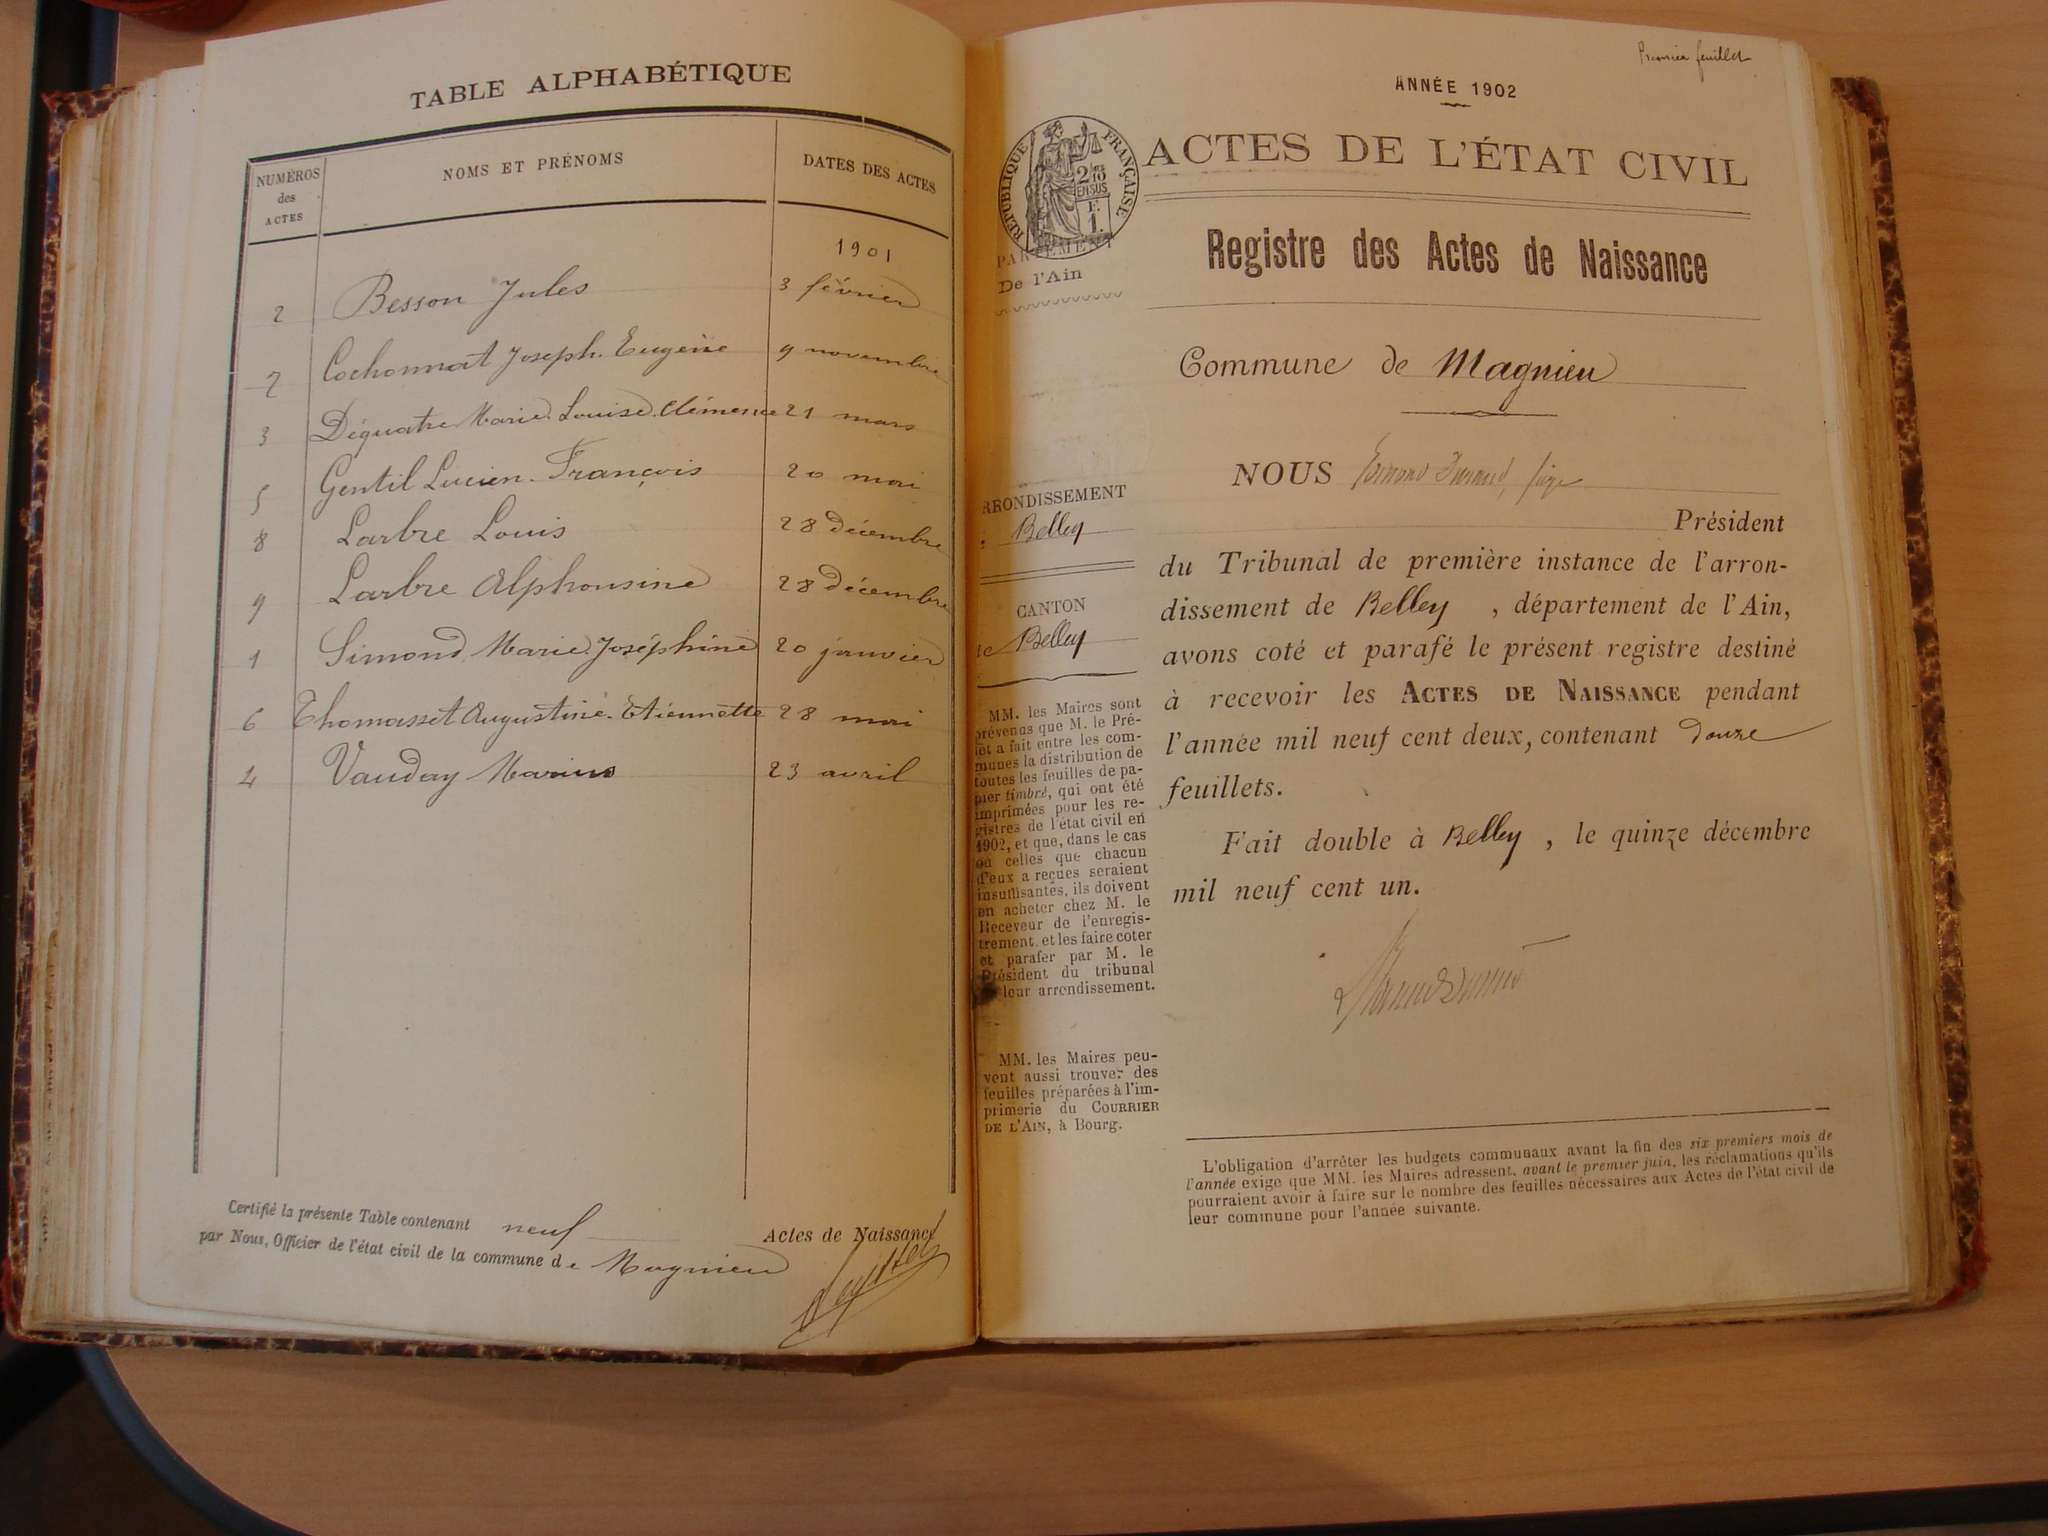 TABLE ALPHABÉTIQUE
NUMÉROS des ACTES
NOMS ET PRÉNOMS
DATES DES ACTES
1901
2 Besson Jules 3 février
7 Cochonnat Joseph Eugène 9 novembre
3 Déquatre Marie Louise Clémence 21 mars
5 Gentil Lucien François 20 mai
8 Larbre Louis 28 décembre
9 Larbre Alphonsine 28 décembre
1 Simond Marie Joséphine 20 janvier
6 Thomasset Augustine Etiennette 28 mai
4 Vauday Marius 23 avril
Certifié la présente Table contenant neuf Actes de Naissance
par Nous, Officier de l'état civil de la commune de Magnieu
Premier feuillet
ANNÉE 1902
RÉPUBLIQUE FRANÇAISE
2/10 EN SUS
F. 1.
ACTES DE L'ÉTAT CIVIL
PARTEMENT
De l'Ain
Registre des Actes de Naissance
Commune de Magnieu
RRONDISSEMENT
Belley
CANTON
Belley
MM. les Maires sont
prévenus que M. le Pré-
fet a fait entre les com-
munes la distribution de
toutes les feuilles de pa-
pier timbré, qui ont été
imprimées pour les re-
gistres de l'état civil en
1902, et que, dans le cas
où celles que chacun
d'eux a reçues seraient
insuffisantes, ils doivent
en acheter chez M. le
Receveur de l'enregis-
trement, et les faire coter
et parafer par M. le
Président du tribunal
leur arrondissement.
MM. les Maires peu-
vent aussi trouver des
feuilles préparées à l'im-
primerie du COURRIER
DE L'AIN, à Bourg.
NOUS
Président
du Tribunal de première instance de l'arron-
dissement de Belley, département de l'Ain,
avons coté et parafé le présent registre destiné
à recevoir les ACTES DE NAISSANCE pendant
l'année mil neuf cent deux, contenant douze
feuillets.
Fait double à Belley, le quinze décembre
mil neuf cent un.
L'obligation d'arrêter les budgets communaux avant la fin des six premiers mois de
l'année exige que MM. les Maires adressent, avant le premier juin, les réclamations qu'ils
pourraient avoir à faire sur le nombre des feuilles nécessaires aux Actes de l'état civil de
leur commune pour l'année suivante.